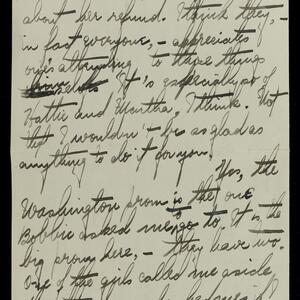 about her refund. I think they,—
in fact everyone,— appreciates
one's attending to those things
It's especially so of
Hattie and Martha, I think. Not
that I wouldn't be as glad as
anything to do it for you.
Yes, the
Washington prom is the one
Bobbie asked me to go to. It is the
big prom here,— they have two.
One of the girls called me aside,